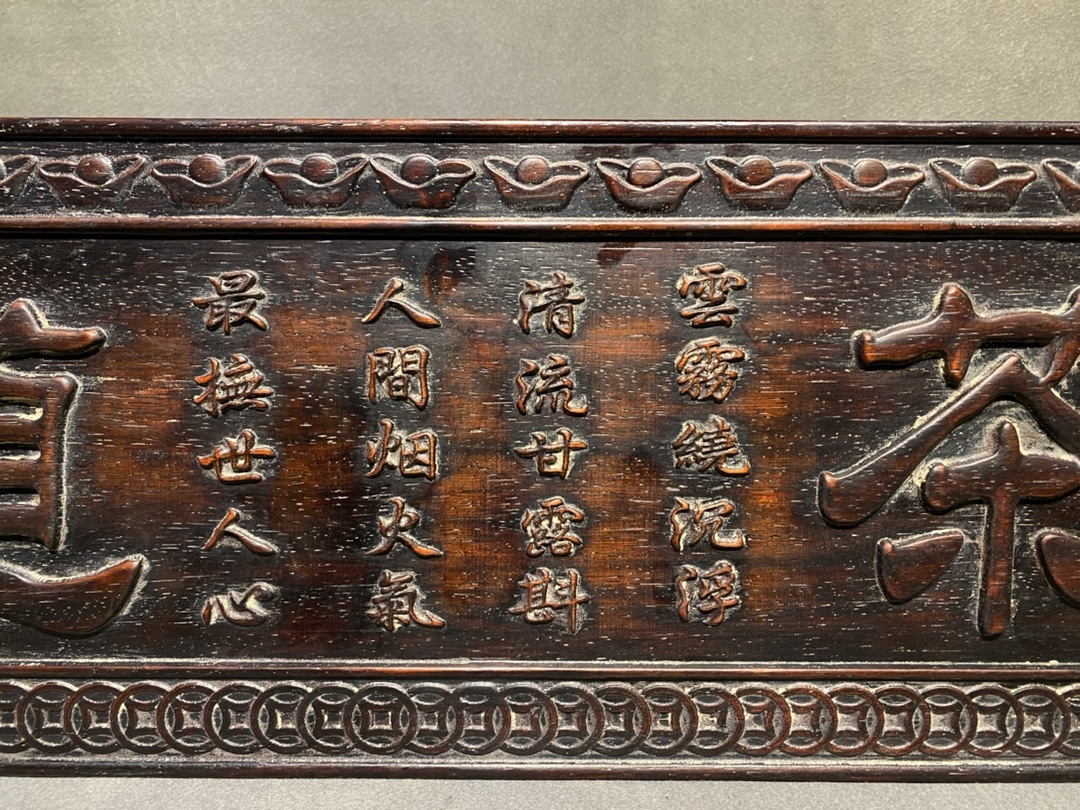 茶
雲霧繞沉浮
清流甘露斟
人間烟火氣
最撫世人心